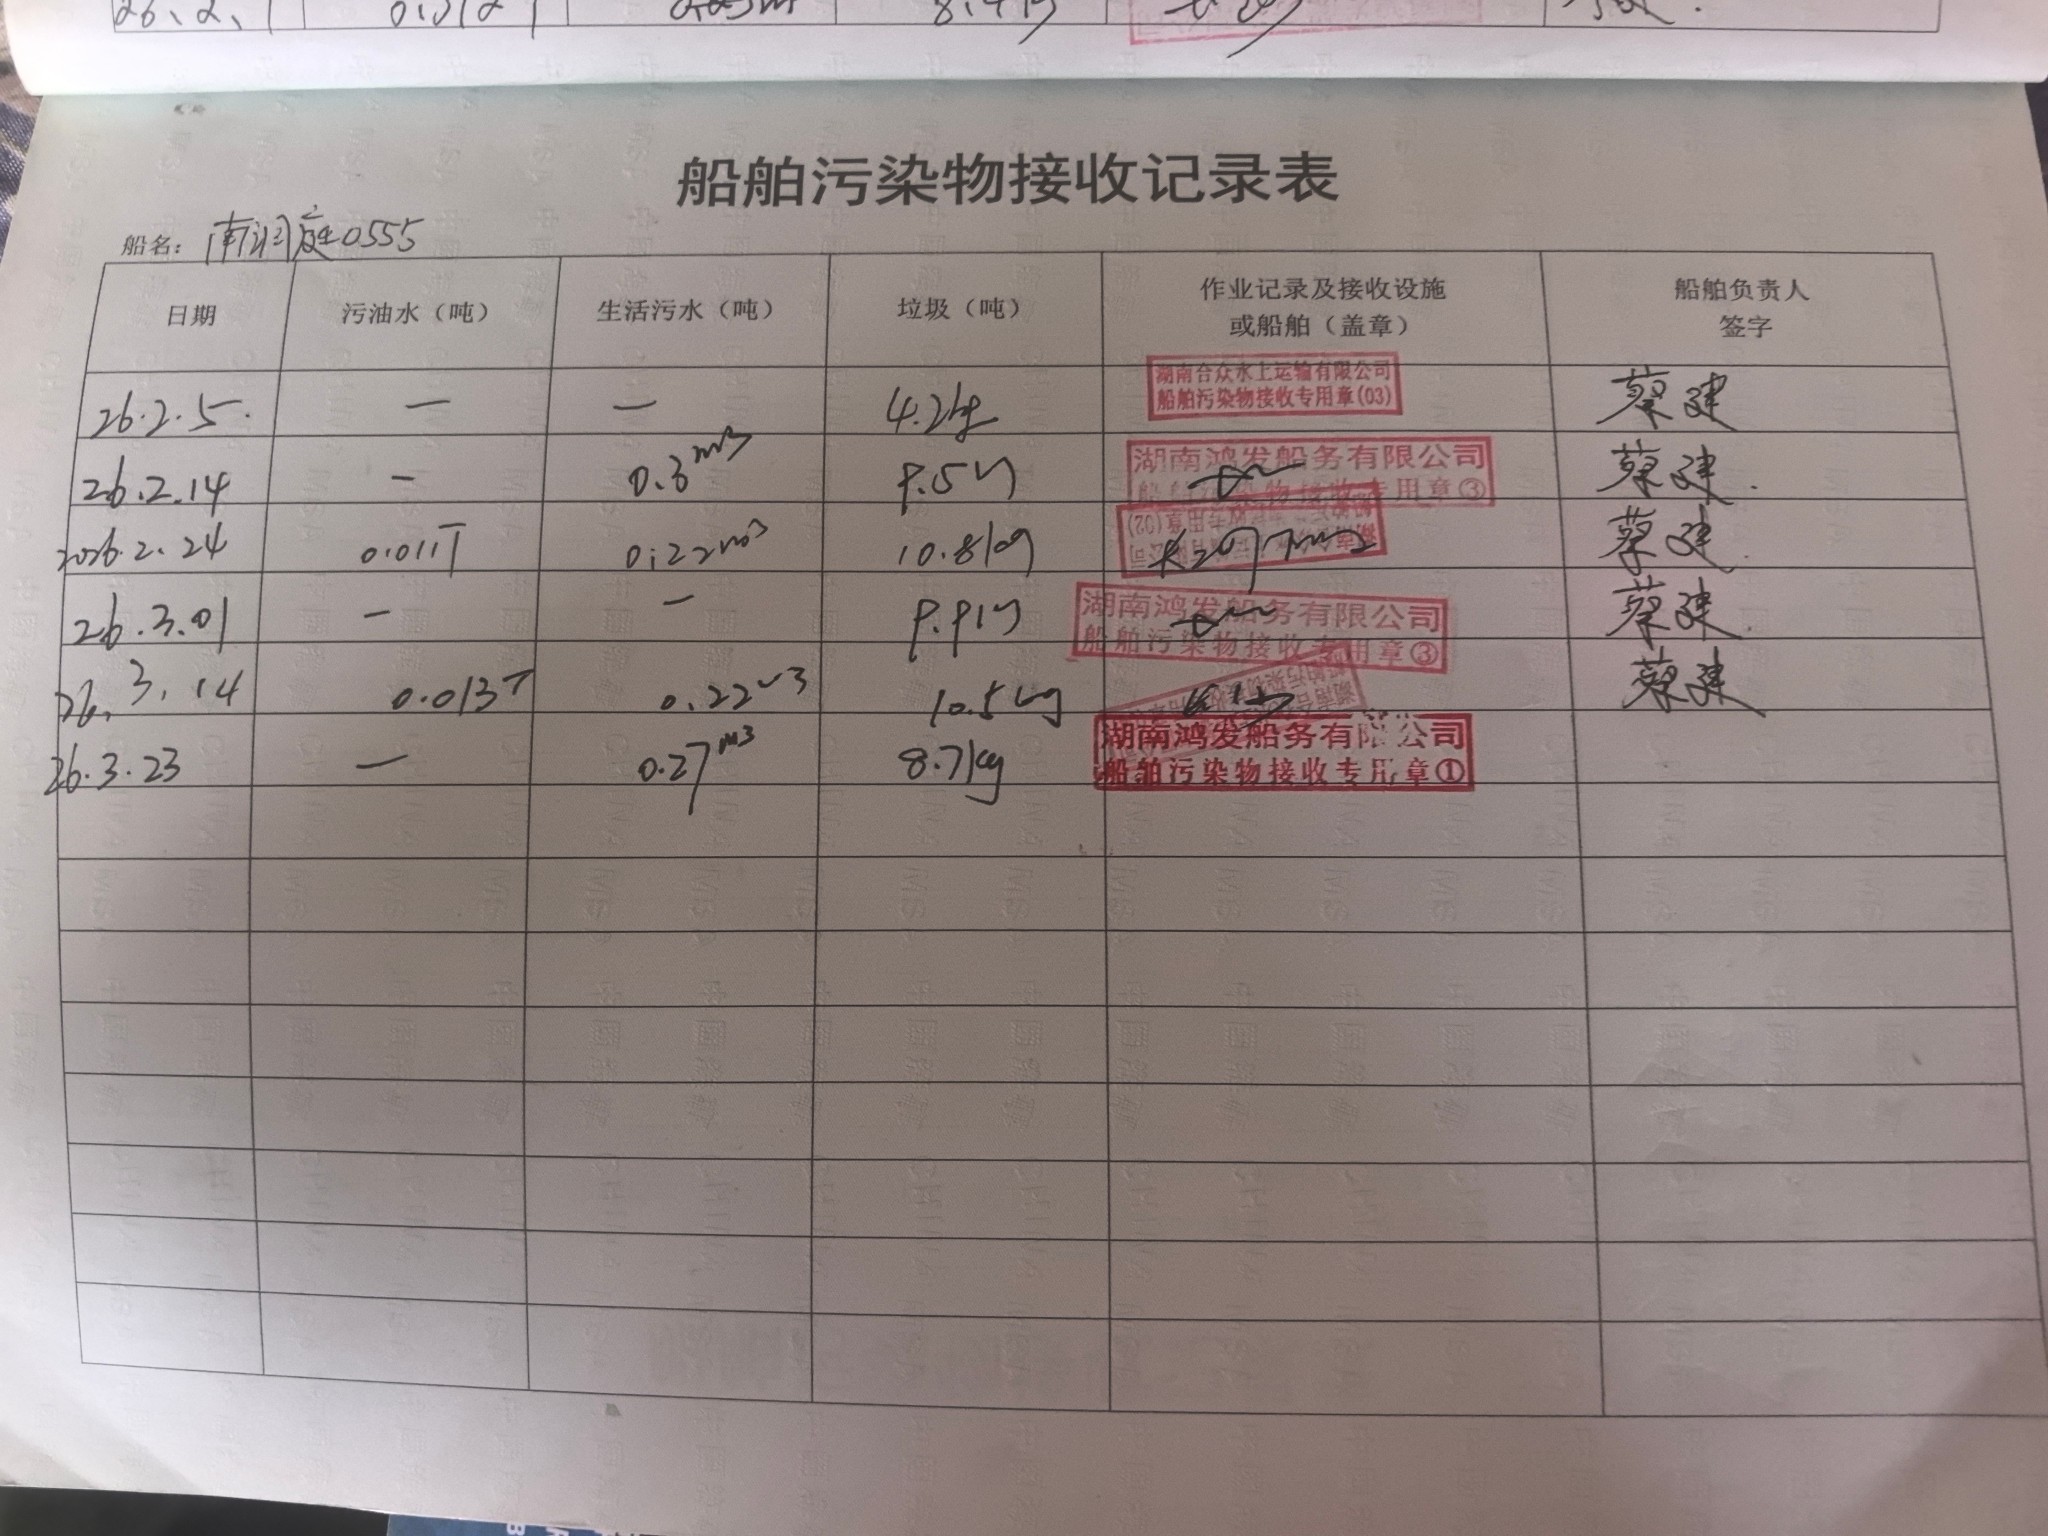 船舶污染物接收记录表
船名: 南洞庭0555
日期 污油水（吨） 生活污水（吨） 垃圾（吨） 作业记录及接收设施或船舶（盖章） 船舶负责人签字
26.2.5. — — 4.2kg 湖南合众水上运输有限公司 船舶污染物接收专用章(03) 蔡建
26.2.14 — 0.3m3 9.5kg 湖南鸿发船务有限公司 船舶污染物接收专用章③ 蔡建.
2026.2.24 0.011T 0.22m3 10.8kg 蔡建.
26.3.01 — — 9.91kg 湖南鸿发船务有限公司 船舶污染物接收专用章③ 蔡建.
26.3.14 0.013T 0.22m3 10.5kg 蔡建
26.3.23 — 0.27m3 8.7kg 湖南鸿发船务有限公司 船舶污染物接收专用章①